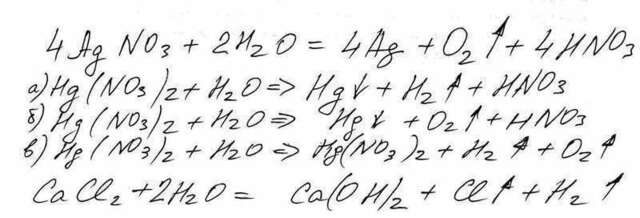 4AgNO3 + 2H2O = 4Ag + O2↑ + 4HNO3
а) Hg(NO3)2 + H2O => Hg↓ + H2↑ + HNO3
б) Hg(NO3)2 + H2O => Hg↓ + O2↑ + HNO3
в) Hg(NO3)2 + H2O => Hg(NO3)2 + H2↑ + O2↑
CaCl2 + 2H2O = Ca(OH)2 + Cl↑ + H2↑